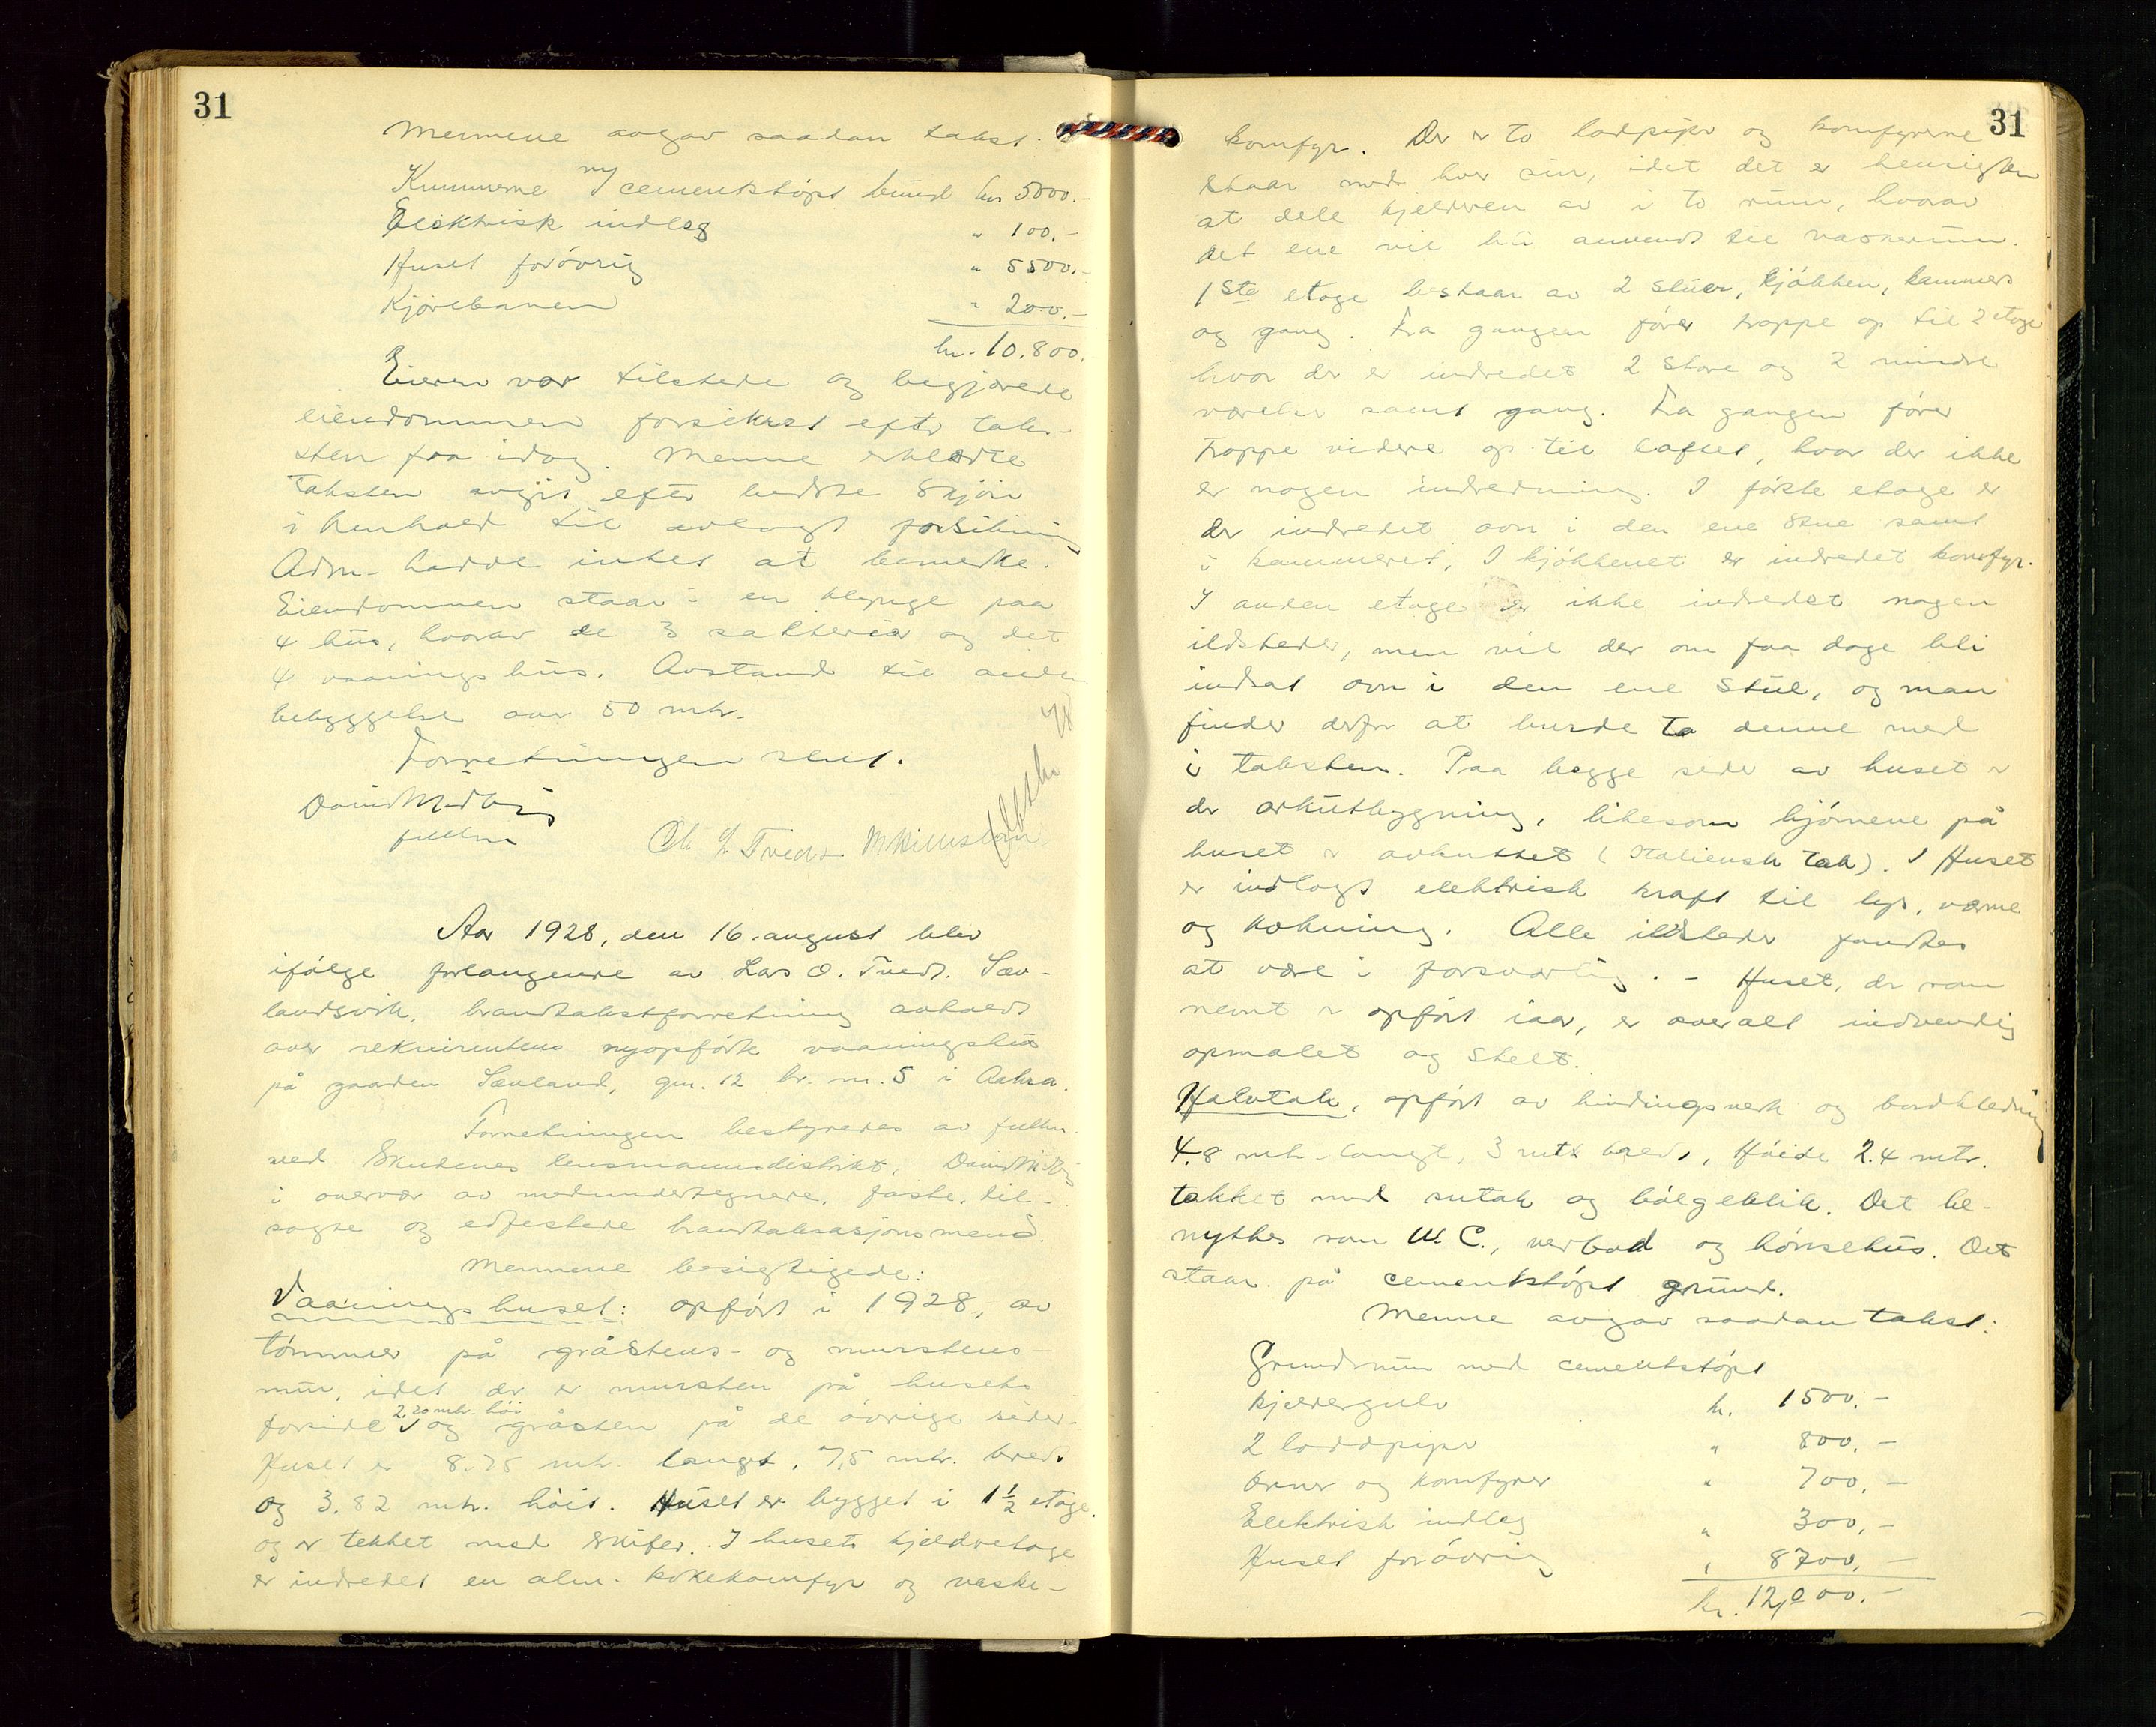 31
Mennene avgav saadan takst:
Kummerne m/ cementstøpt bund kr 5000.-
Elektrisk indlæg " 100.-
Huset forøvrig " 5500.-
Kjørebanen " 200.-
kr. 10.800.
Eieren var tilstede og begjærede
eiendommen forsikret efter tak-
sten fra idag. Menne erklærte
Taksten avgit efter bedste skjøn
i henhold til avlagt forsikring
Adm. hadde intet at bemerke.
Eiendommen staar i en klynge paa
4 hus, hvorav de 3 salterier og det
4 vaaningshus. Avstand til anden
bebyggelse over 50 mtr.
Forretningen slut.
David Medhus
fullm
Ch G Tvedt M Hillesland
Aar 1928, den 16. august blev
ifølge forlangende av Lars O. Tvedt. Sæv-
landsvik, brandtakstforretning avholdt
over rekvirentens nyopførte vaaningshus
på gaarden Sævland, gnr. 12 br. nr. 5 i Aakra.
Forretningen bestyredes av fullm.
ved Skudenes lensmannsdistrikt, David Medhus
i overvær av medundertegnede, faste, til-
sagte og edfestede brandtaksasjonsmend.
Mennene besigtigede:
Vaaningshuset: opført i 1928, av
tømmer på gråstens- og murstens-
mur, idet der er mursten på husets
forside 2.20 mtr. høi og gråsten på de øvrige sider.
Huset er 8.75 mtr. langt, 7,5 mtr. bredt
og 3.82 mtr. høit. Huset er bygget i 1 1/2 etage.
og er tekket med skifer. I husets kjelderetage
er indredet en alm. kokekomfyr og vaske-
31
komfyr. Der er to lodpiper og komfyrerne
staar med hver sin, idet det er hensigten
at dele kjelderen av i to rum, hvorav
det ene vil bli anvendt til vaskerum.
1ste etage bestaar av 2 stuer, kjøkken, kammers
og gang. Fra gangen fører trappe op til 2 etage
hvor der er indredet 2 store og 2 mindre
værelser samt gang. Fra gangen fører
trappe videre op til loftet, hvor der ikke
er nogen indredning. I første etage er
der indredet ovn i den ene stue samt
i kammeret, I kjøkkenet er indredet komfyr.
I anden etage er ikke indredet nogen
ildsteder, men vil der om faa dage bli
indsat ovn i den ene stue, og man
finder derfor at burde ta denne med
i taksten. Paa begge sider av huset er
der arkutbygning, likesom hjørnene på
huset er avkuttet (Italiensk tak). I Huset
er indlagt elektrisk kraft til lys, varme
og kokning. Alle ildsteder fandtes
at være i forsvarlig. - Huset, der som
nevnt er opført iaar, er overalt indvendig
opmalet og stelt.
Halvtak, opført av bindingsverk og bordkledning
4.8 mtr. langt, 3 mtr bredt, Høide 2.4 mtr.
tekket med sutak og bølgeblik. Det be-
nyttes som W.C., vedbod og hønsehus. Det
staar på cementstøpt grund.
Menne avgav saadan takst:
Grundmur med cementstøpt
kjeldergulv kr. 1500.-
2 loddpiper " 800.-
Ovner og komfyrer " 700.-
Elektrisk indlæg " 300.-
Huset forøvrig " 8700.-
kr. 12,000.-